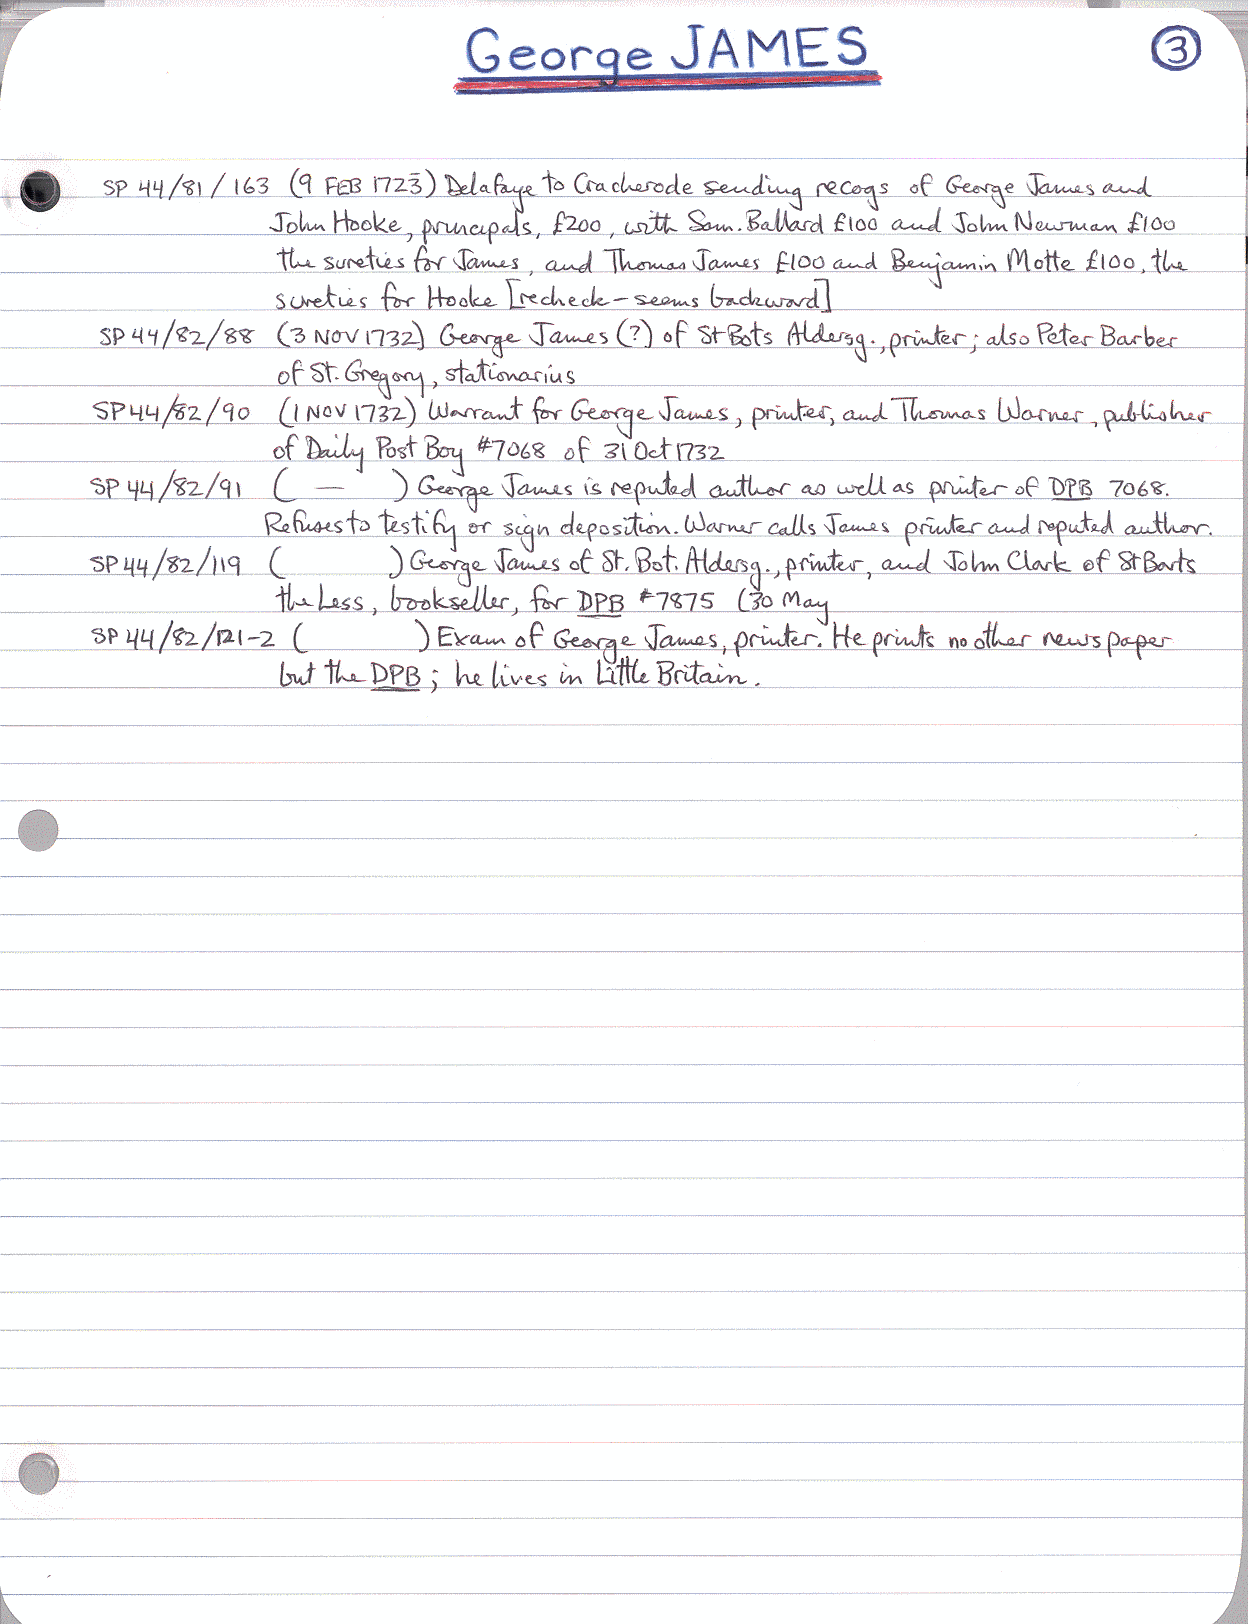 George JAMES
3
SP 44/81/163 (9 FEB 1723) Delafaye to Cracherode sending recogs of George James and
John Hooke, principals, £200, with Sam. Ballard £100 and John Newman £100
the sureties for James, and Thomas James £100 and Benjamin Motte £100, the
sureties for Hooke [recheck – seems backward]
SP 44/82/88 (3 NOV 1732) George James (?) of St Bots Aldersg., printer; also Peter Barber
of St. Gregory, stationarius
SP 44/82/90 (1 NOV 1732) Warrant for George James, printer, and Thomas Warner, publisher
of Daily Post Boy #7068 of 31 Oct 1732
SP 44/82/91 ( — ) George James is reputed author as well as printer of DPB 7068.
Refuses to testify or sign deposition. Warner calls James printer and reputed author.
SP 44/82/119 ( ) George James of St. Bot. Aldersg., printer, and John Clark of St Barts
the Less, bookseller, for DPB #7875 (30 May
SP 44/82/121-2 ( ) Exam of George James, printer. He prints no other newspaper
but the DPB; he lives in Little Britain.